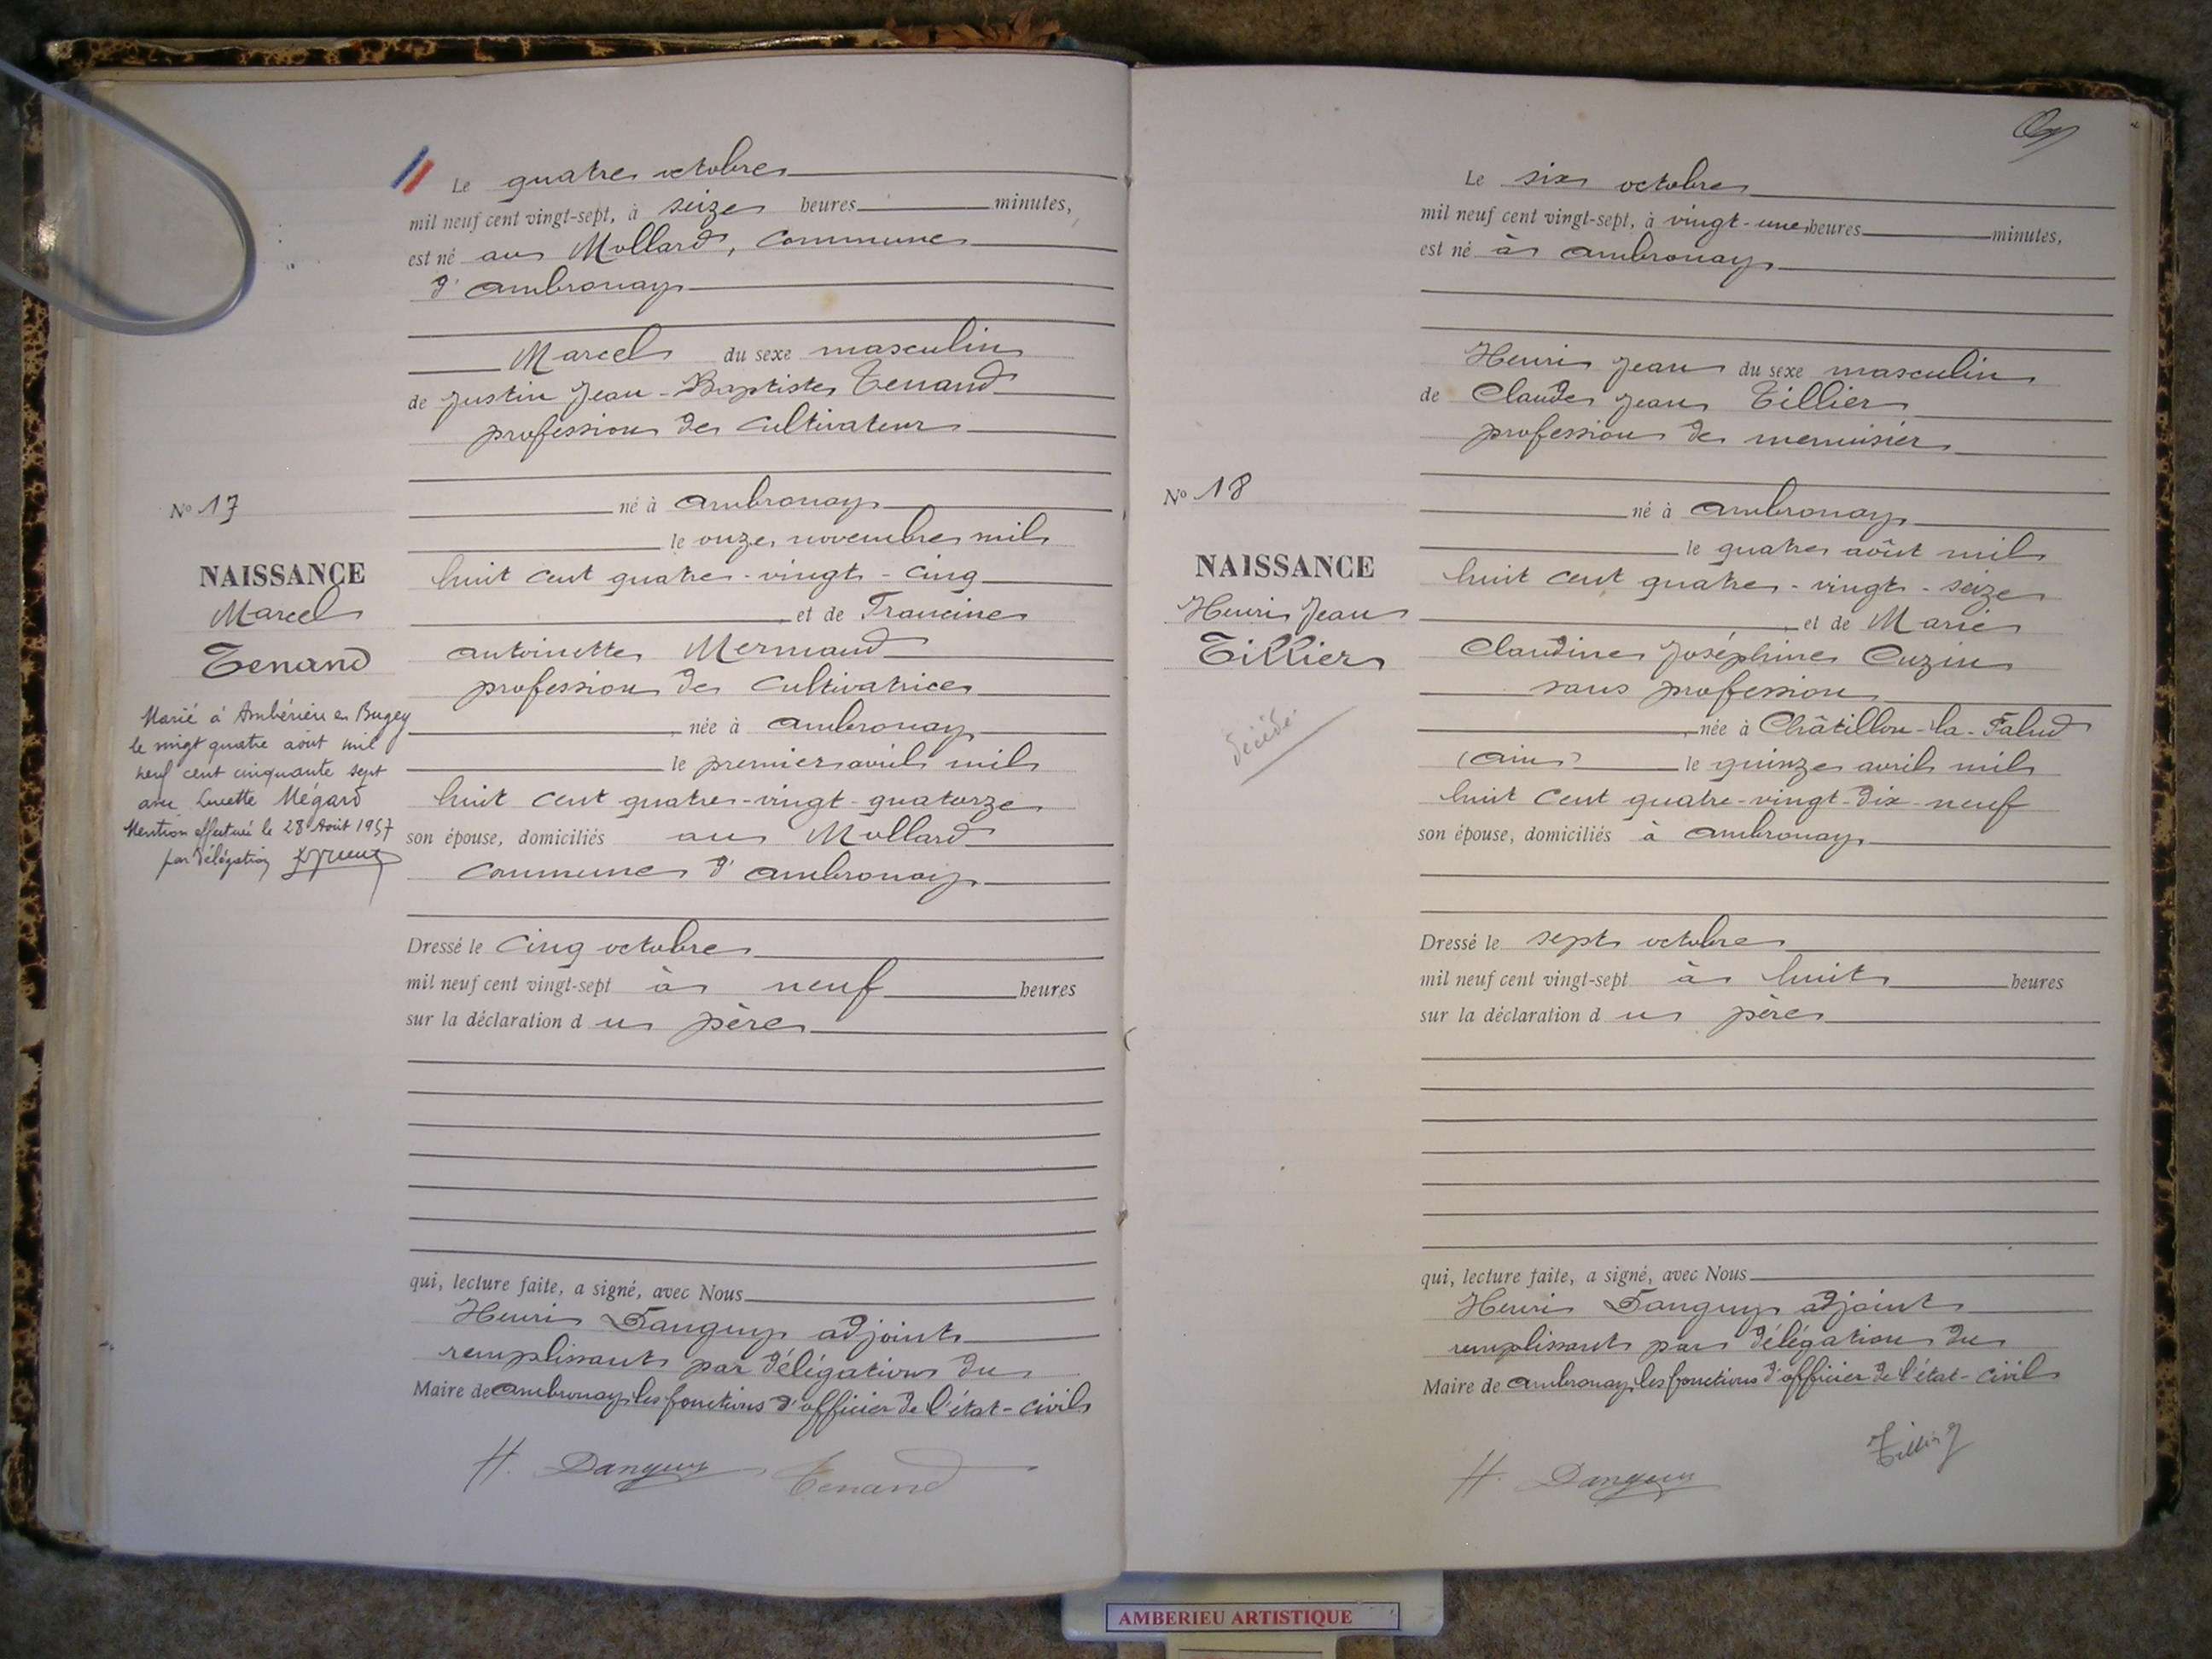 Le quatre octobre
mil neuf cent vingt-sept, à seize heures minutes,
est né au Mollard, commune
d'ambronay
Marcel du sexe masculin
de Justin Jean-Baptiste Tenand
profession de cultivateur
né à ambronay
le onze novembre mil
huit cent quatre-vingt-cinq
et de Francine
antoinette Mermand
profession de cultivatrice
née à ambronay
le premier avril mil
huit cent quatre-vingt-quatorze
son épouse, domiciliés au Mollard
commune d'ambronay
Dressé le cinq octobre
mil neuf cent vingt-sept à neuf heures
sur la déclaration du père
qui, lecture faite, a signé, avec Nous
Henri Danguy adjoint
remplissant par délégation du
Maire de ambronay les fonctions d'officier de l'état-civil
H. Danguy Tenand
No 17
NAISSANCE
Marcel
Tenand
Marié à Ambérieu en Bugey
le vingt quatre août mil
neuf cent cinquante sept
avec Lucette Mégard
Mention effectuée le 28 Août 1957
par délégation
Le six octobre
mil neuf cent vingt-sept, à vingt-une heures minutes,
est né à ambronay
Henri Jean du sexe masculin
de Claude Jean Tillier
profession de menuisier
né à ambronay
le quatre août mil
huit cent quatre-vingt-seize
et de Marie
Claudine Joséphine Cuzin
sans profession
née à Châtillon-la-Palud
(ain) le quinze avril mil
huit cent quatre-vingt-dix-neuf
son épouse, domiciliés à ambronay
Dressé le sept octobre
mil neuf cent vingt-sept à huit heures
sur la déclaration du père
qui, lecture faite, a signé, avec Nous
Henri Danguy adjoint
remplissant par délégation du
Maire de ambronay les fonctions d'officier de l'état-civil
H. Danguy Tillier
No 18
NAISSANCE
Henri Jean
Tillier
décédé
AMBERIEU ARTISTIQUE